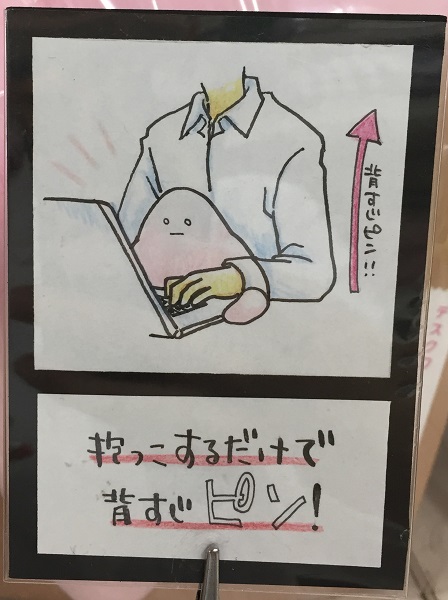 背すじピン!!
抱っこするだけで
背すじピン!